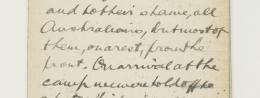 and to their shame, all
Australians, but most of
them, on a rest, from the
front. On arrival at the
camp we were told off to